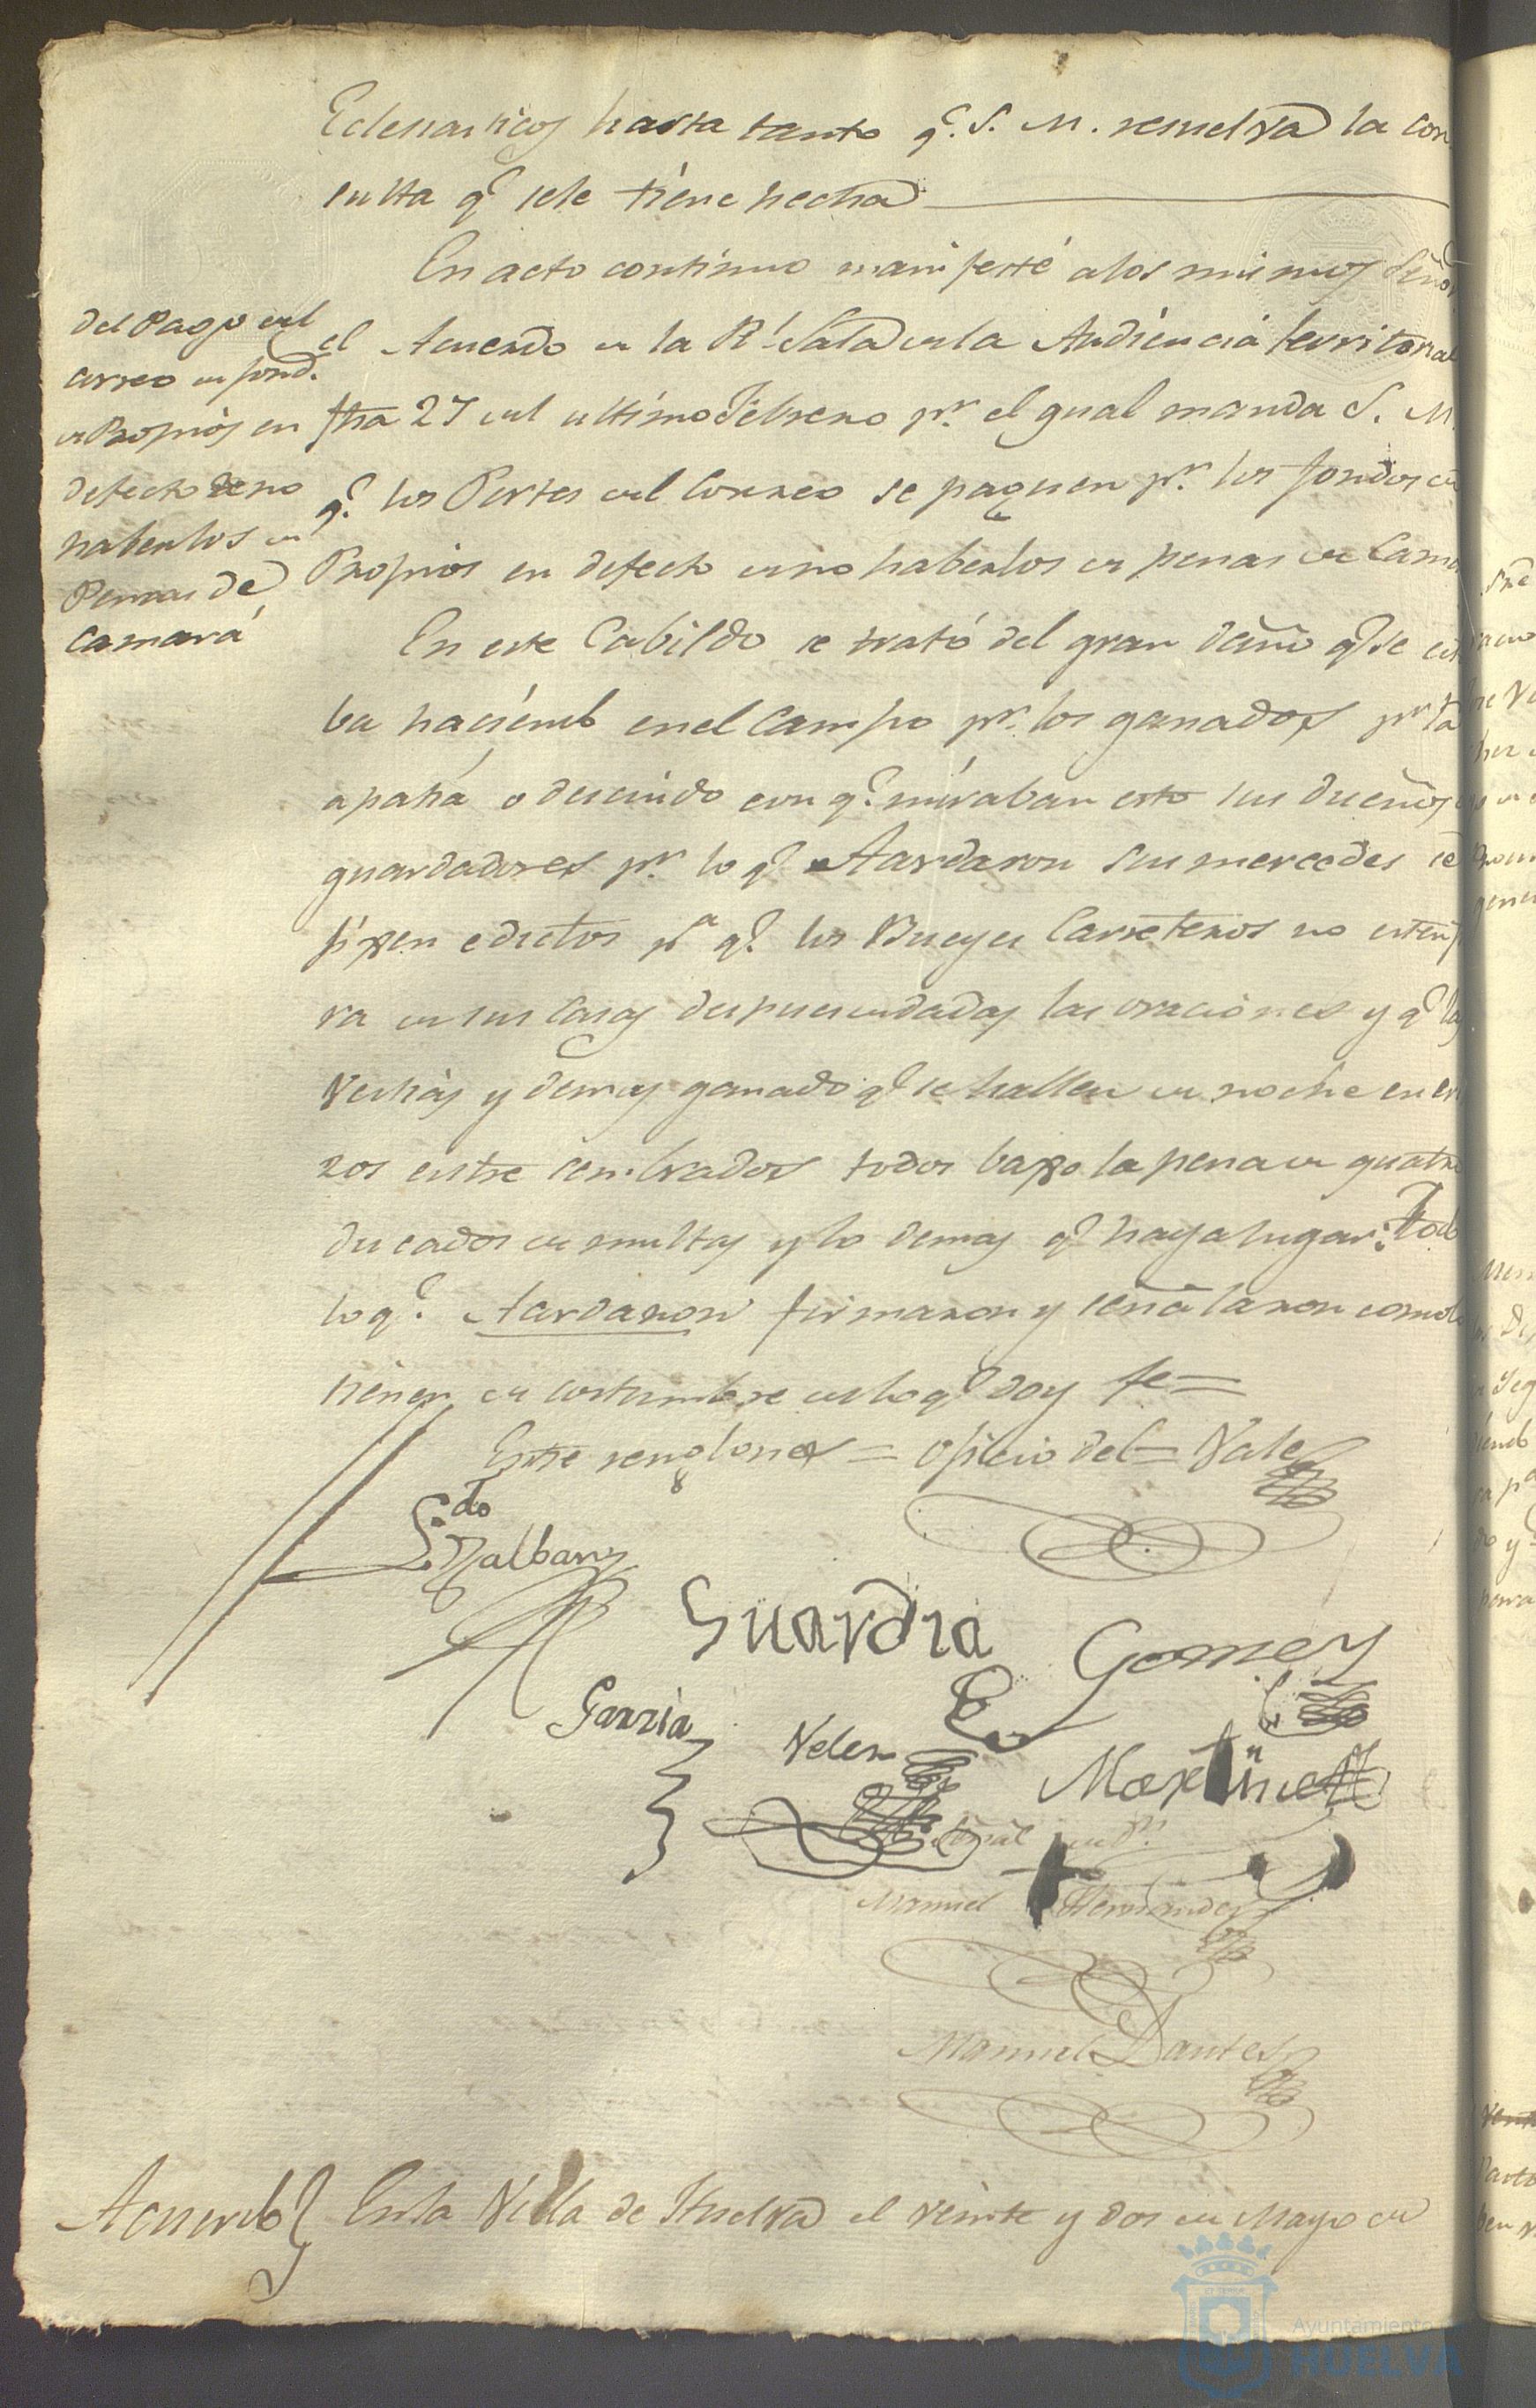 Eclesiasticos hasta tanto q.e S. M. resuelva la con
sulta q.e sele tiene hecha
En acto continuo manifesté alos mismos Señor
el Acuerdo de la R.l Sala de la Audiencia territorial
fha 27 del ultimo Febrero p.r el qual manda S. M.
q.e los Portes del Correo se paguen p.r los fondos de
Propios en defecto de no haberlos de penas de Cama
del Pago del
correo de fond.s
de Propios en
defecto de no
haberlos de
Penas de
Camara
En este Cabildo se trató del gran daño q.e se esta
ba haciendo en el Campo p.r los ganados p.r la
apatia o descuido con q.e miraban esto sus dueños
guardadores p.r lo q.e Acordaron sus mercedes se
fixen edictos p.a q.e los Bueyes Carreteros no esten fue
ra de sus Casas despues de dadas las oraciones y q.e las
Vestias y demas ganado q.e se hallen de noche en
zos entre sembrados todos baxo la pena de quatro
ducados de multa y lo demas q.e haya lugar: Todo
lo q.e Acordaron firmaron y señalaron como lo
tienen de costumbre de lo q.e doy fe=
Entre renglones = oficio del = Vale
L.do Malbany
Guardia
Gomez
Garzia
Velez
Martinez
Señal de D.n
Manuel Hernandez
Manuel Dantes
Acuerdo
En la Villa de Huelva el veinte y dos de Mayo de
Ayuntamiento
HUELVA